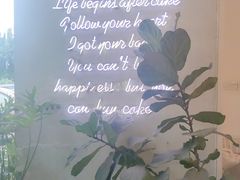 Life begins after cake
Follow your heart
I got your ba
You can't b
happiness but you
can buy cake